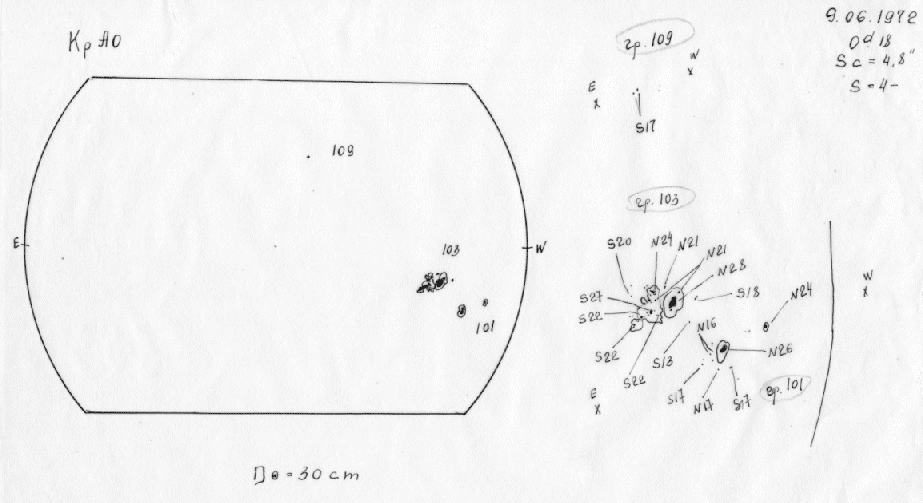 Кр АО
9.06.1972
0d 18
Sc = 4,8"
S = 4-
гр. 109
W
E
x
x
S17
109
E
W
103
101
гр. 103
S20
N24
N21
N21
N28
S18
N24
W
x
S27
S22
S22
S22
S18
N16
N26
S17
N17
S17
гр. 101
E
x
D⊙ = 30 cm